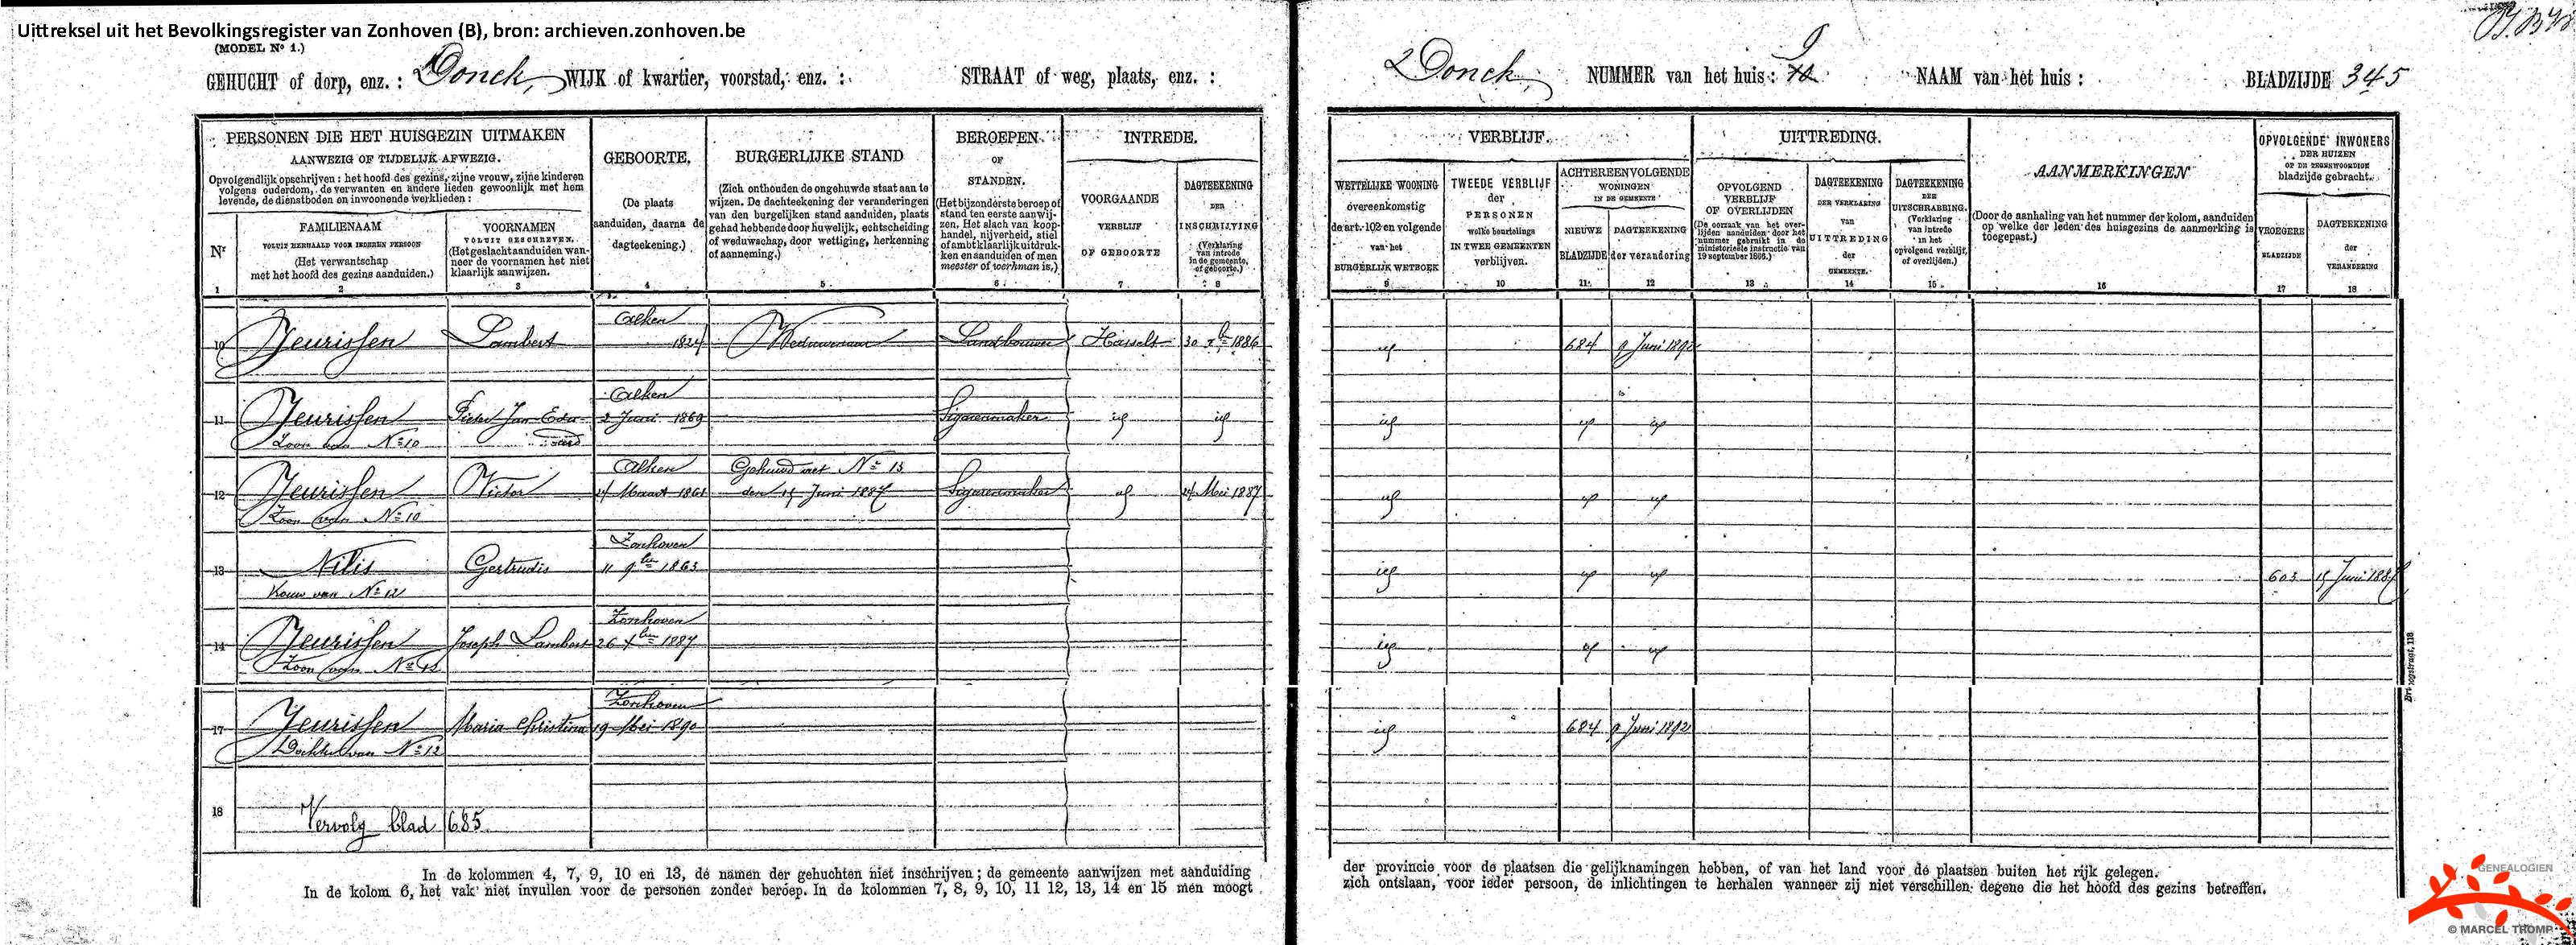 Uittreksel uit het Bevolkingsregister van Zonhoven (B), bron: archieven.zonhoven.be
(MODEL No 1.)
GEHUCHT of dorp, enz. : Donck, WIJK of kwartier, voorstad, enz. : STRAAT of weg, plaats, enz. :
PERSONEN DIE HET HUISGEZIN UITMAKEN
AANWEZIG OF TIJDELIJK AFWEZIG.
Opvolgendlijk opschrijven : het hoofd des gezins, zijne vrouw, zijne kinderen
volgens ouderdom, de verwanten en andere lieden gewoonlijk met hem
levende, de dienstboden en inwoonende werklieden :
Nr
1
FAMILIENAAM
VOLUIT HERHAALD VOOR IEDEREN PERSOON
(Het verwantschap
met het hoofd des gezins aanduiden.)
2
VOORNAMEN
VOLUIT GESCHREVEN.
(Het geslacht aanduiden wan-
neer de voornamen het niet
klaarlijk aanwijzen.
3
GEBOORTE.
(De plaats
aanduiden, daarna de
dagteekening.)
4
BURGERLIJKE STAND
(Zich onthouden de ongehuwde staat aan te
wijzen. De dachteekening der veranderingen
van den burgelijken stand aanduiden, plaats
gehad hebbende door huwelijk, echtscheiding
of weduwschap, door wettiging, herkenning
of aanneming.)
5
BEROEPEN
OF
STANDEN.
(Het bijzonderste beroep of
stand ten eerste aanwij-
zen. Het slach van koop-
handel, nijverheid, stiel
of ambt klaarlijk uitdruk-
ken en aanduiden of men
meester of werkman is.)
6
INTREDE.
VOORGAANDE
VERBLIJF
OF GEBOORTE
7
DAGTEEKENING
DER
INSCHRIJVING
(Verklaring
van intrede
in de gemeente,
of geboorte.)
8
10 Jeurissen Lambert Alken 1824 Weduwenaar Landbouwer Hasselt 30 7ber 1886
11 Jeurissen Pieter Jan Edu-
ard
Zoon van No 10
Alken
2 Juni 1869 Sigarenmaker id id
12 Jeurissen Victor
Zoon van No 10
Alken
Maart 1861
Gehuwd met No 13
den 15 Juni 1887 Sigarenmaker id Mei 1887
13 Nilis Gertrudis
Vrouw van No 12
Zonhoven
11 9ber 1863
14 Jeurissen Joseph Lambert
Zoon van No 12
Zonhoven
26 1887
17 Jeurissen Maria Christina
Dochter van No 12
Zonhoven
19 Mei 1890
18 Vervolg blad 685.
In de kolommen 4, 7, 9, 10 en 13, de namen der gehuchten niet inschrijven ; de gemeente aanwijzen met aanduiding
In de kolom 6, het vak niet invullen voor de personen zonder beroep. In de kolommen 7, 8, 9, 10, 11 12, 13, 14 en 15 men moogt
2 Donck, NUMMER van het huis : NAAM van het huis : BLADZIJDE 345
VERBLIJF.
WETTELIJKE WOONING
overeenkomstig
de art. 102 en volgende
van het
BURGERLIJK WETBOEK
9
TWEEDE VERBLIJF
der
PERSONEN
welke beurtelings
IN TWEE GEMEENTEN
verblijven.
10
ACHTEREENVOLGENDE
WONINGEN
IN DE GEMEENTE
NIEUWE
BLADZIJDE
11
DAGTEEKENING
der verandering
12
UITTREDING.
OPVOLGEND
VERBLIJF
OF OVERLIJDEN
(De oorzaak van het over-
lijden aanduiden door het
nummer gebruikt in de
ministerieële instructie van
19 september 1866.)
13
DAGTEEKENING
DER VERKLARING
van
UITTREDING
der
GEMEENTE.
14
DAGTEEKENING
DER
UITSCHRABBING.
(Verklaring
van intrede
in het
opvolgend verblijf,
of overlijden.)
15
AANMERKINGEN
(Door de aanhaling van het nummer der kolom, aanduiden
op welke der leden des huisgezins de aanmerking is
toegepast.)
16
OPVOLGENDE INWONERS
DER HUIZEN
OP DE TEGENWOORDIGE
bladzijde gebracht.
VROEGERE
BLADZIJDE
17
DAGTEEKENING
der
VERANDERING
18
id 684 9 Juni 1892
id id id
id id id
id id id 603 15 Juni 1887
id id id
id 684 9 Juni 1892
der provincie voor de plaatsen die gelijknamingen hebben, of van het land voor de plaatsen buiten het rijk gelegen.
zich ontslaan, voor ieder persoon, de inlichtingen te herhalen wanneer zij niet verschillen degene die het hoofd des gezins betreffen.
GENEALOGIEN
© MARCEL TROMP